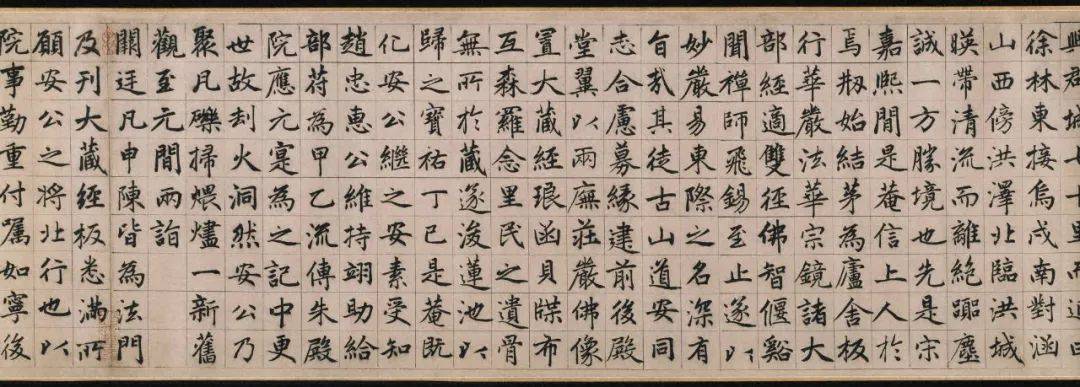 興郡城七十里而近曰
徐林東接烏戍南對涵
山西傍洪澤北臨洪城
暎帶清流而離絕囂塵
誠一方勝境也先是宋
嘉熙間是菴信上人於
焉刱始結茅為廬舍板
行華嚴法華宗鏡諸大
部經適雙徑佛智偃谿
聞禪師飛錫至止遂以
妙嚴易東際之名深有
旨哉其徒古山道安同
志合慮募緣建前後殿
堂翼以兩廡莊嚴佛像
置大藏經琅函貝牒布
互森羅念里民之遺骨
無所於藏遂浚蓮池以
歸之寶祐丁巳是菴既
化安公繼之安素受知
趙忠惠公維持翊助給
部符為甲乙流傳朱殿
院應元寔為之記中更
世故刼火洞然安公乃
聚凡礫掃煨燼一新舊
觀至元間兩詣
闕廷凡申陳皆為法門
及刊大藏經板悉滿所
願安公之將北行也以
院事勤重付囑如寧後